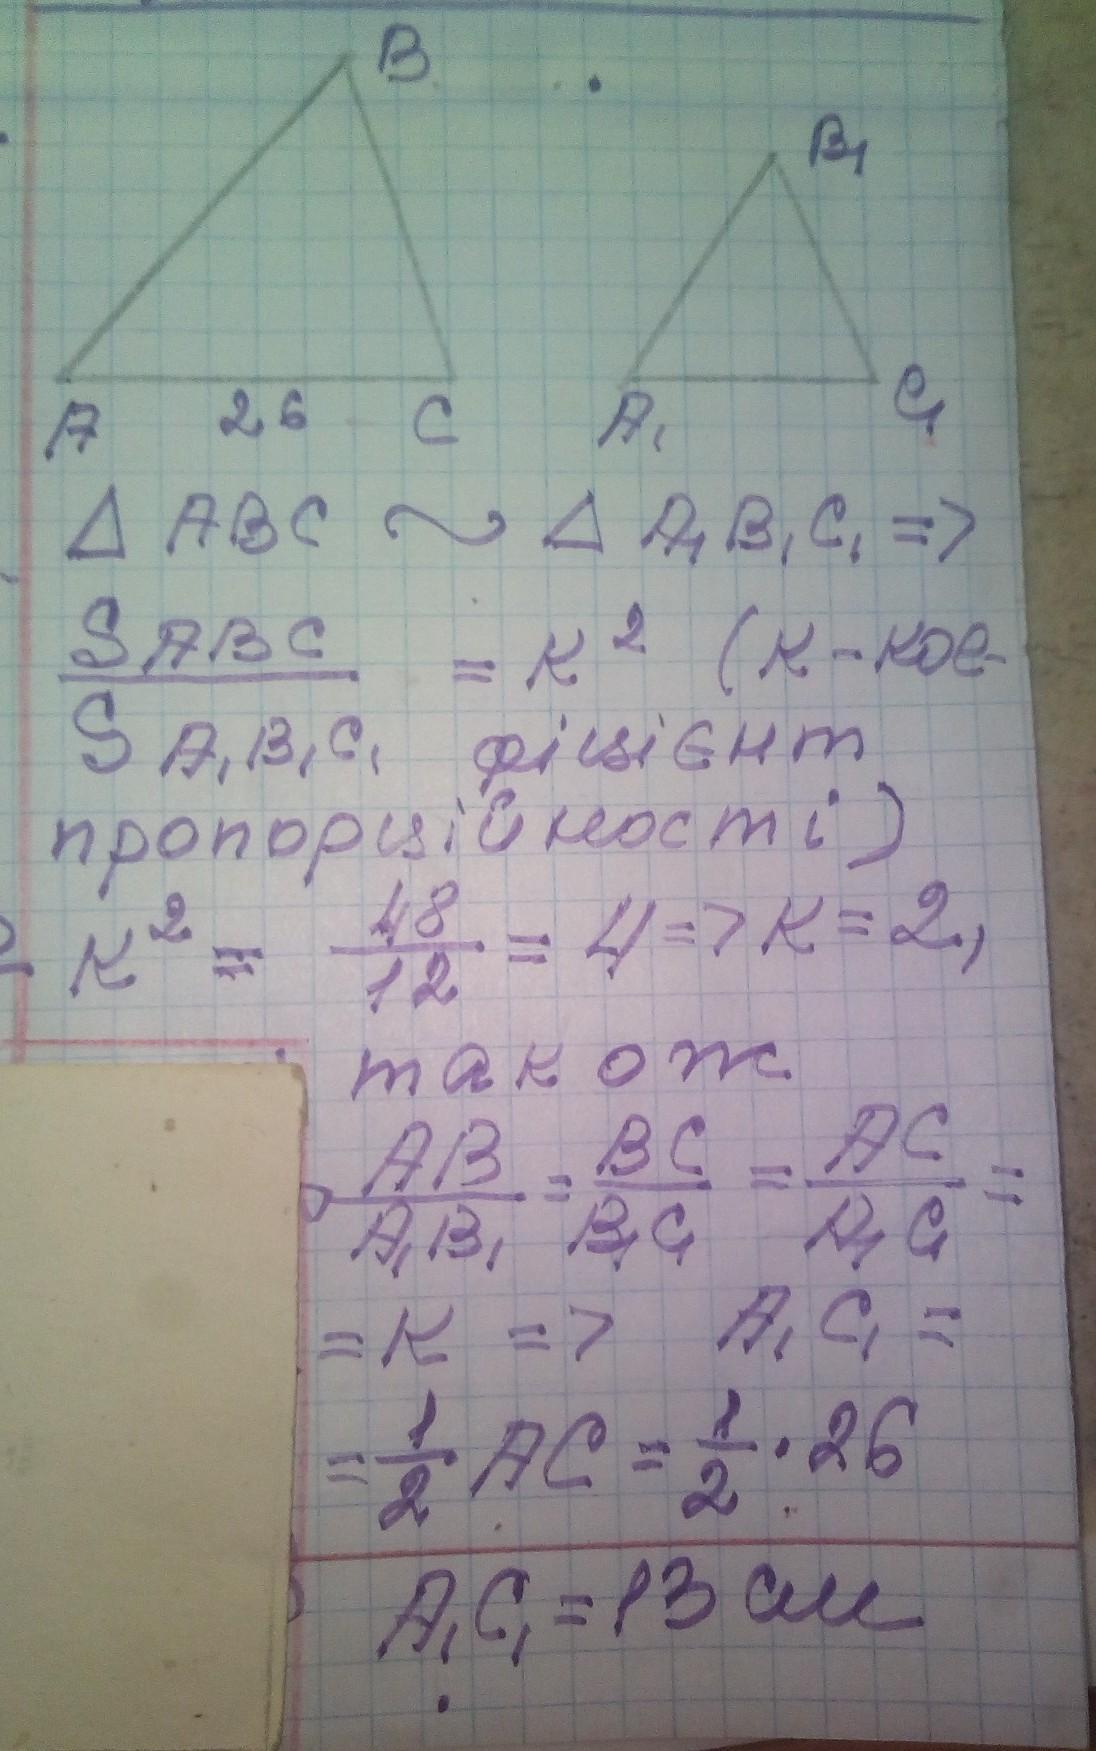 B
B₁
A 26 C A₁ C₁
Δ ABC ~ Δ A₁B₁C₁ =>
S ABC / S A₁B₁C₁ = к² (к - кое-
фіцієнт
пропорційності)
к² = 48/12 = 4 => к = 2,
також
AB/A₁B₁ = BC/B₁C₁ = AC/A₁C₁ =
= к => A₁C₁ =
= 1/2 AC = 1/2 · 26
A₁C₁ = 13 см